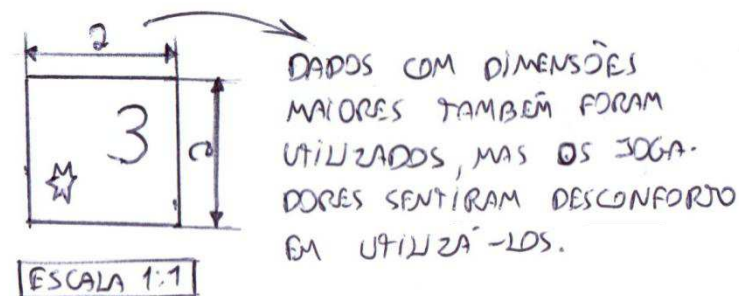 2
3
2
DADOS COM DIMENSÕES
MAIORES TAMBÉM FORAM
UTILIZADOS, MAS OS JOGA-
DORES SENTIRAM DESCONFORTO
EM UTILIZÁ-LOS.
ESCALA 1:1